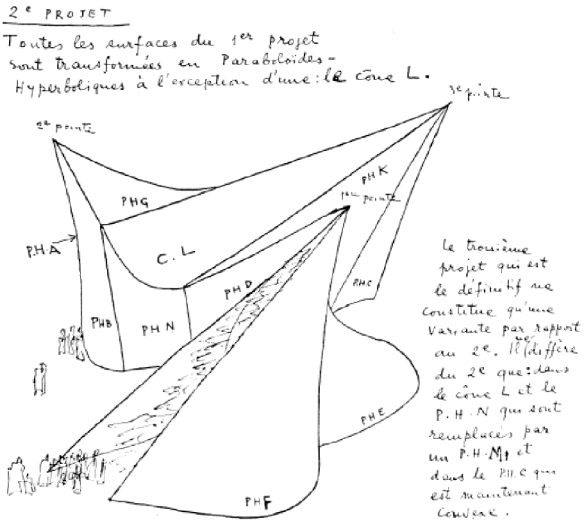 2e PROJET
Toutes les surfaces du 1er projet
sont transformées en Paraboloïdes-
Hyperboliques à l'exception d'une: le cône L.
3e pointe
2e pointe
PHK
PHG
1ère pointe
PHA
C.L
PHD
PHC
PHB
PHN
PHE
PHF
Le troisième
projet qui est
le définitif ne
constitue qu'une
variante par rapport
au 2e. Il ne diffère
du 2e que: dans
le cône L et le
P.H.N qui sont
remplacés par
un P.H.M, et
dans le PHC qui
est maintenant
convexe.